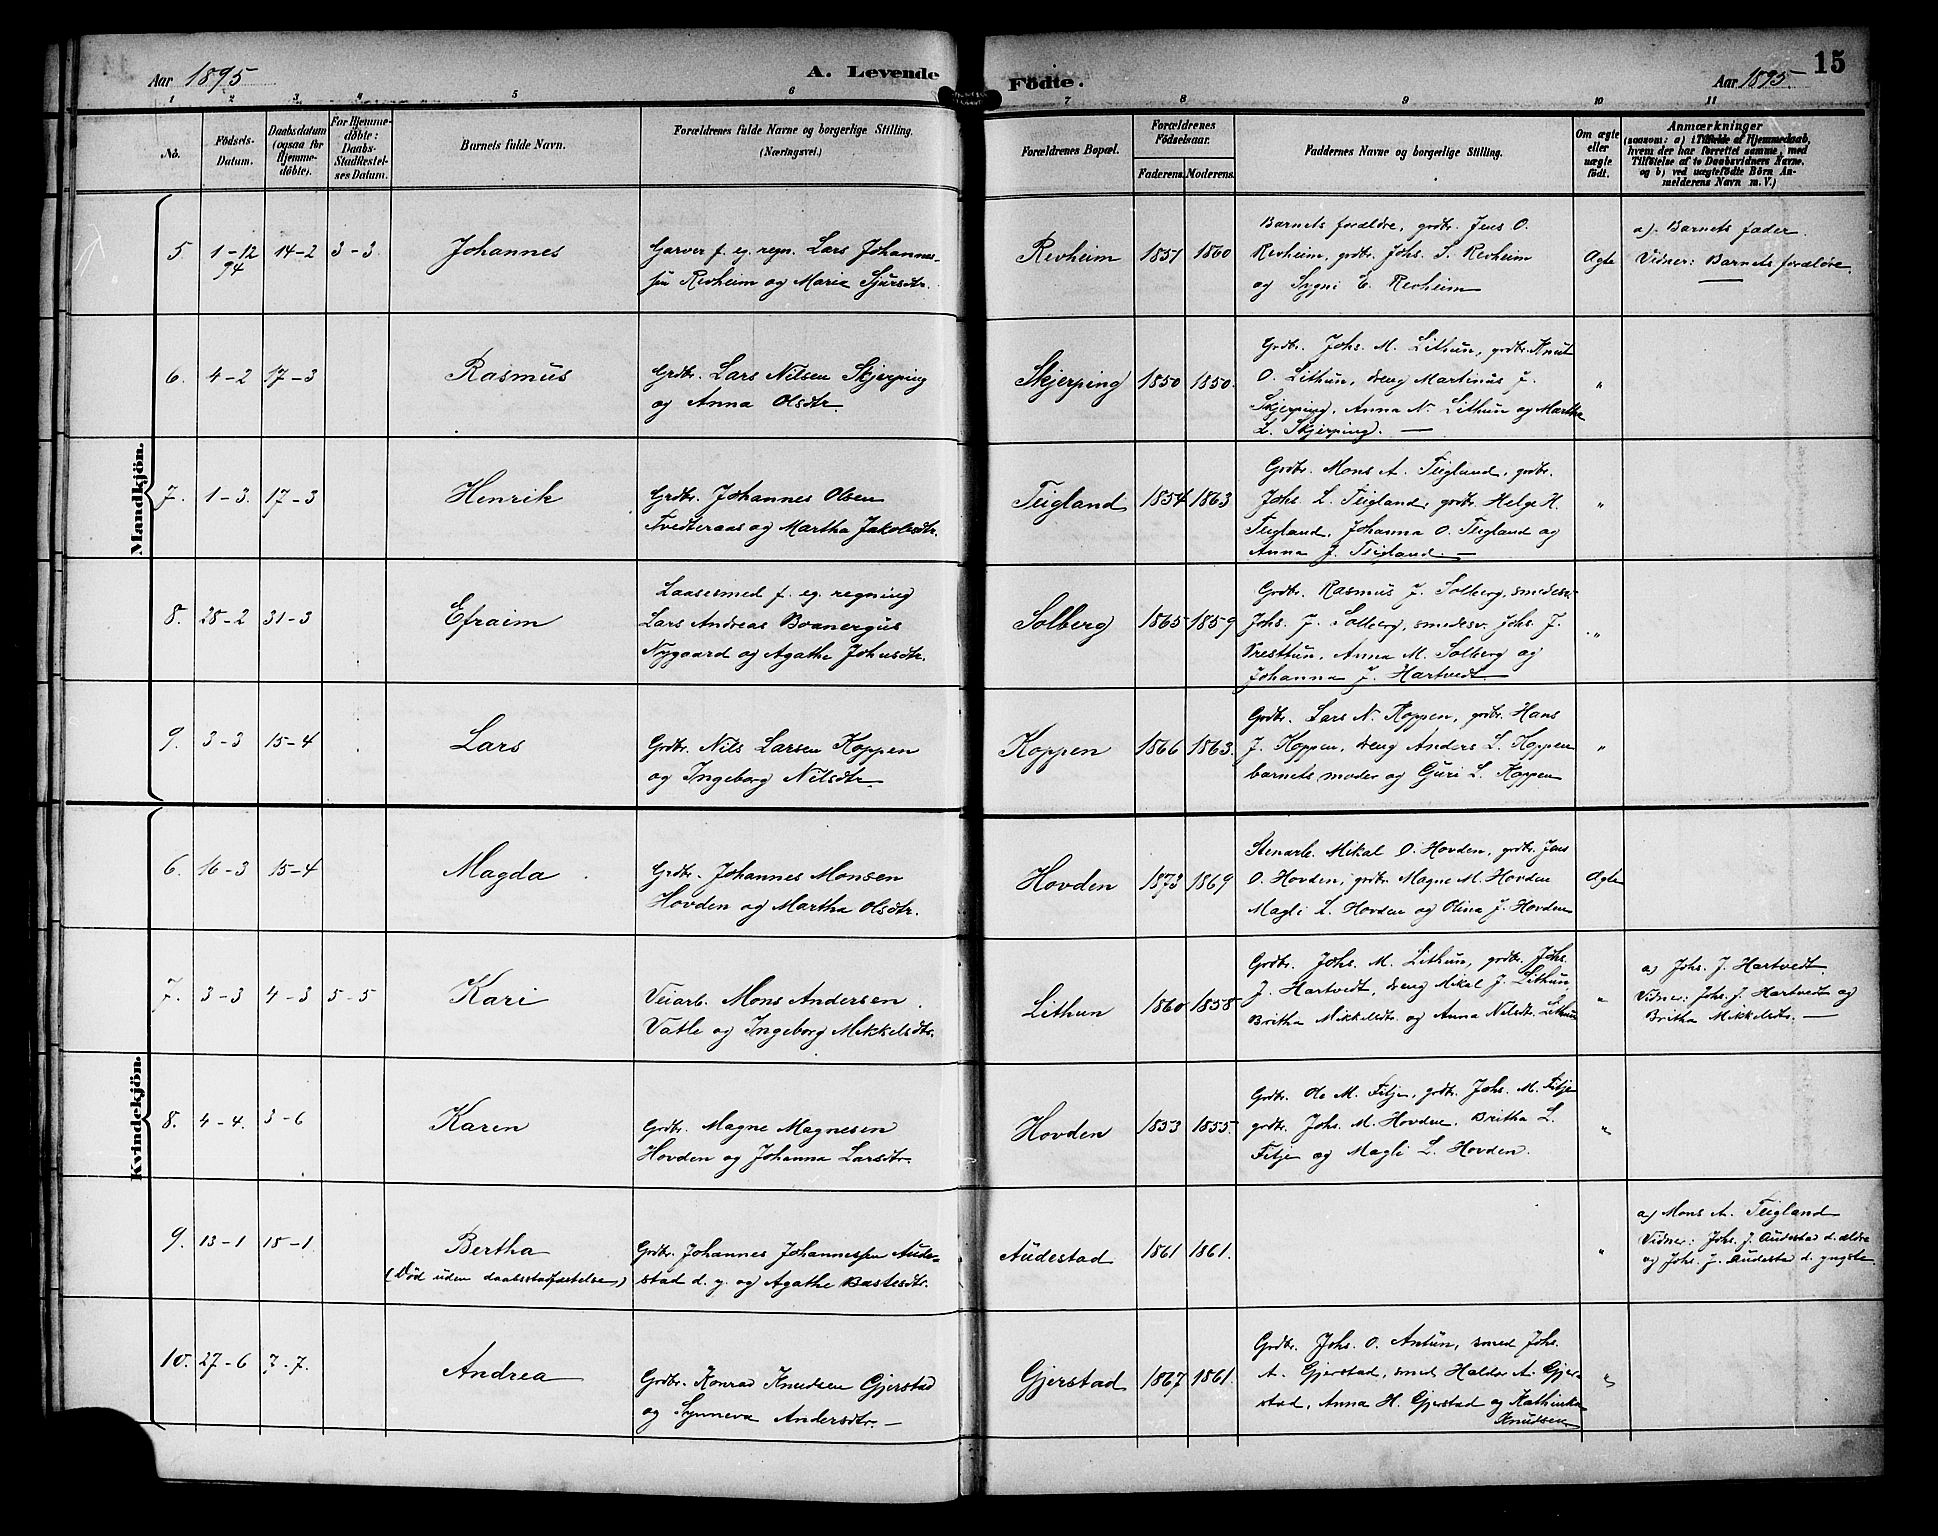 Aar 1895
A. Levende Födte.
Aar 1895.
15
1 2 3 4 5 6 7 8 9 10 11
No.
Födsels-Datum.
Daabsdatum (ogsaa for Hjemme-døbte).
For Hjemme-døbte: Daabs-Stadfæstel-ses Datum.
Barnets fulde Navn.
Forældrenes fulde Navne og borgerlige Stilling. (Næringsvei.)
Forældrenes Bopæl.
Forældrenes Födselsaar.
Faderens. Moderens.
Faddernes Navne og borgerlige Stilling.
Om ægte eller uægte født.
Anmærkninger
(saasom: a) i Tilfælde af Hjemmedaab, hvem der har forrettet samme, med Tilföielse af to Daabsvidners Navne, og b) ved uægtefödte Börn An-melderens Navn m. V.)
Mandkjön.
5. 1-12 94 14-2 3-3 Johannes
Garver f. eg. regn. Lars Johannes-
sen Revheim og Marie Sjursdtr.
Revheim 1851 1860
Barnets forældre, grdbr. Jens O.
Revheim, grdbr. Johs. S. Revheim
og Sygni E. Revheim
Ægte
a). Barnets fader.
Vidner: Barnets forældre.
6. 4-2 17-3 Rasmus
Grdbr. Lars Nilsen Skjerping
og Anna Olsdtr.
Skjerping 1850 1850.
Grdbr. Johs. M. Lithun, grdbr. Knut
O. Lithun, dreng Martinus J.
Skjerping, Anna N. Lithun og Martha
L. Skjerping. —
"
7. 1-3. 17-3 Henrik
Grdbr. Johannes Olsen
Tvedteraas og Martha Jakobsdtr.
Teigland 1854 1863
Grdbr. Mons A. Teigland, grdbr.
Johs. L. Teigland, grdbr. Helge H.
Teigland, Johanna O. Teigland og
Anna J. Teigland. —
"
8. 28-2 31-3 Efraim
Laasesmed f. eg. regning
Lars Andreas Boanergus
Nygaard og Agathe Johnsdtr.
Solberg 1865 1859
Grdbr. Rasmus J. Solberg, smedesv.
Johs. J. Solberg, smedesv. Johs. J.
Presthun, Anna M. Solberg og
Johanna J. Hartvedt.
"
9. 3-3 15-4 Lars
Grdbr. Nils Larsen Koppen
og Ingeborg Nilsdtr.
Koppen 1866 1863.
Grdbr. Lars N. Koppen, grdbr. Hans
J. Koppen, dreng Anders L. Koppen
barnets moder og Guri L. Koppen
"
Kvindekjön.
6. 16-3 15-4 Magda
Grdbr. Johannes Monsen
Hovden og Martha Olsdtr.
Hovden 1873 1869
Stenarb. Mikal O. Hovden, grdbr. Jens
O. Hovden, grdbr. Magne M. Hovden
Magli L. Hovden og Olina J. Hovden
Ægte
7. 3-3 4-3 5-5 Kari
Veiarb. Mons Andersen
Vatle og Ingeborg Mikkelsdtr.
Lithun 1860 1858
Grdbr. Johs. M. Lithun, grdbr. Johs.
J. Hartvedt, dreng Mikal J. Lithun,
Britha Mikkelsdtr. og Anna Nilsdt. Lithun
"
a) Johs. J. Hartvedt.
Vidner: Johs. J. Hartvedt og
Britha Mikkelsdtr. —
8. 4-4. 3-6 Karen
Grdbr. Magne Magnesen
Hovden og Johanna Larsdtr.
Hovden 1853 1855.
Grdbr. Ole M. Fitje, grdbr. Johs. M. Fitje
grdbr. Johs. M. Hovden. Britha L.
Fitje og Magli L. Hovden.
"
9. 13-1 18-1. Bertha
(Død uden daabsstadfæstelse)
Grdbr. Johannes Johannessen Aude-
stad d. y. og Agathe Bastesdtr.
Audestad 1861 1861.
"
a) Mons A. Teigland
Vidner: Johs. J. Audestad d. ældre
og Johs. J. Audestad d. yngste
10. 27-6 7-7. Andrea
Grdbr. Konrad Knudsen Gjerstad
og Synneva Andersdtr. —
Gjerstad 1867 1861.
Grdbr. Johs. O. Antun, smed Johs.
A. Gjerstad, smed Haldor A. Gjer-
stad, Anna H. Gjerstad og Kathinka
Knudsen
"